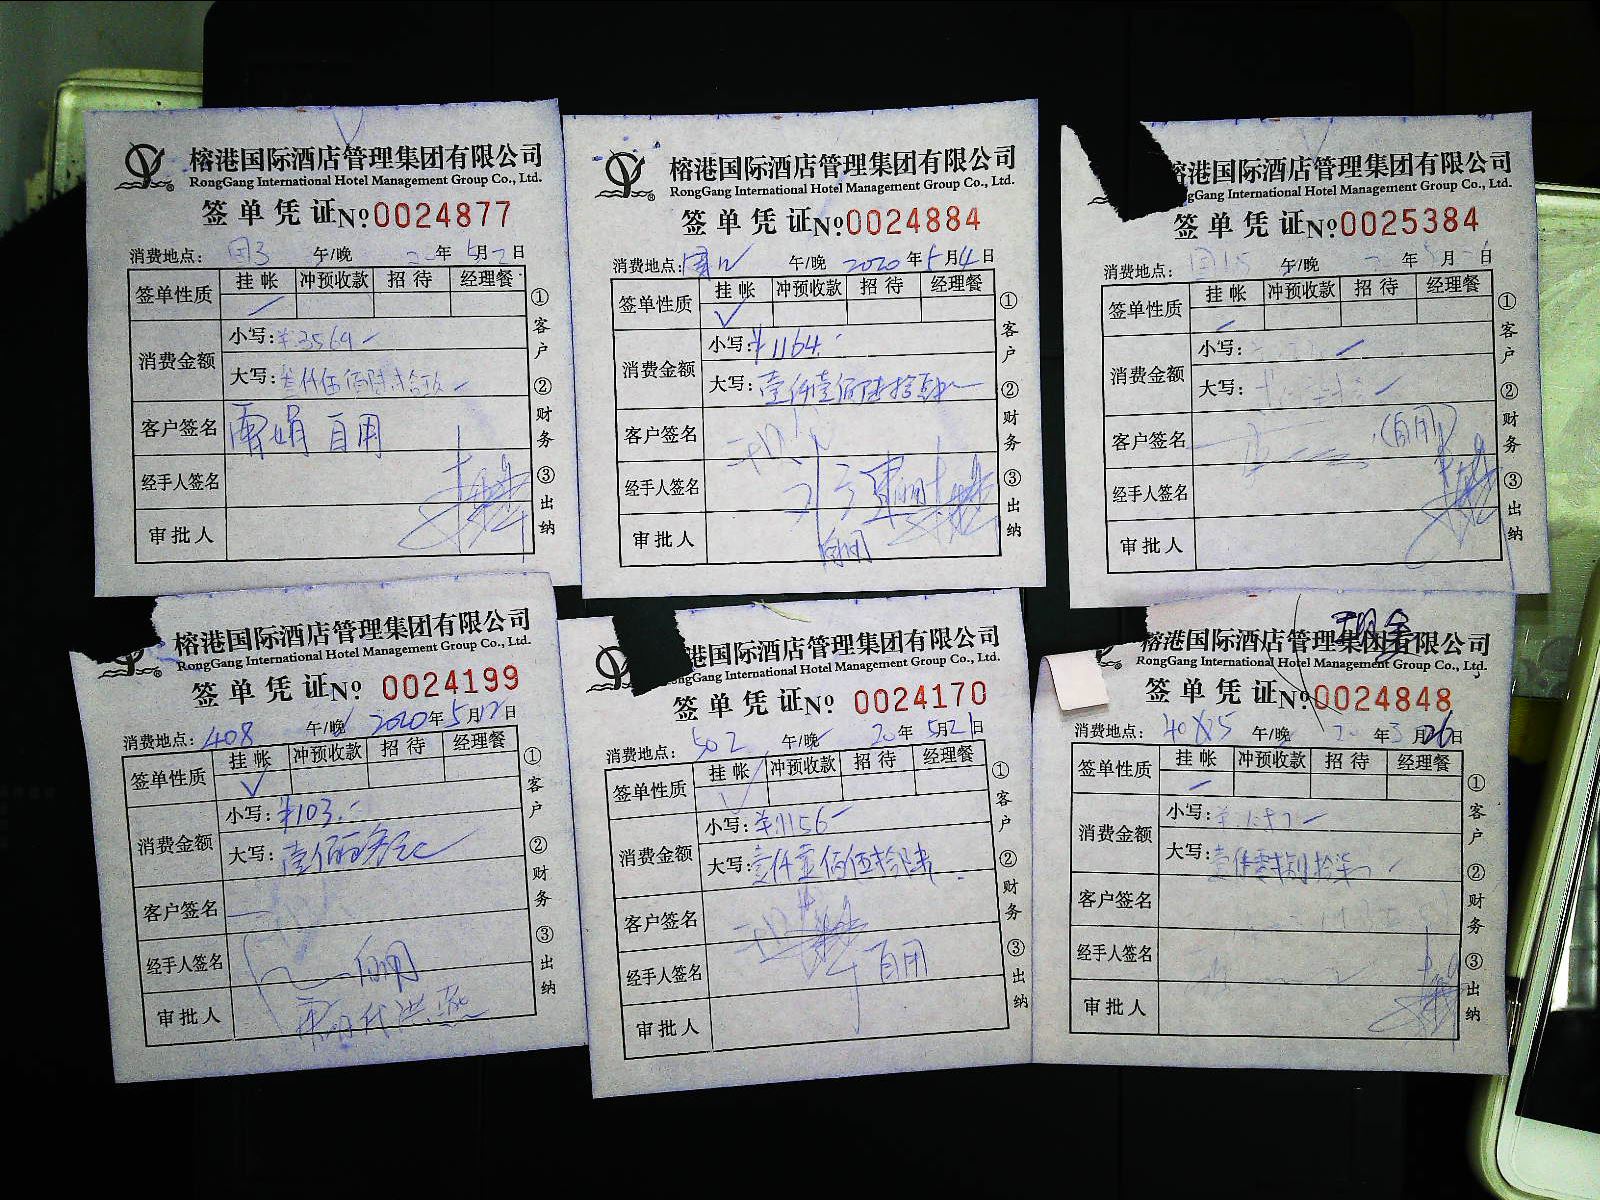 榕港国际酒店管理集团有限公司
RongGang International Hotel Management Group Co., Ltd.
签单凭证 No 0024877
消费地点: 午/晚 年5月2日
签单性质 挂帐 冲预收款 招待 经理餐
消费金额 小写:¥3569
大写:叁仟伍佰陆拾玖
客户签名 雷娟 自用
经手人签名
审批人
①客户 ②财务 ③出纳
榕港国际酒店管理集团有限公司
RongGang International Hotel Management Group Co., Ltd.
签单凭证 No 0024884
消费地点: 午/晚 2020年5月4日
签单性质 挂帐 冲预收款 招待 经理餐
消费金额 小写:¥1164.-
大写:壹仟壹佰陆拾肆
客户签名
经手人签名
审批人 自用
①客户 ②财务 ③出纳
榕港国际酒店管理集团有限公司
gGang International Hotel Management Group Co., Ltd.
签单凭证 No 0025384
消费地点: 午/晚 年 月 日
签单性质 挂帐 冲预收款 招待 经理餐
消费金额 小写:
大写:
客户签名 (自用)
经手人签名
审批人
①客户 ②财务 ③出纳
榕港国际酒店管理集团有限公司
RongGang International Hotel Management Group Co., Ltd.
签单凭证 No 0024199
消费地点: 408 午/晚 2020年5月12日
签单性质 挂帐 冲预收款 招待 经理餐
消费金额 小写:¥103.-
大写:壹佰零叁元
客户签名
经手人签名 自用
审批人
①客户 ②财务 ③出纳
港国际酒店管理集团有限公司
ngGang International Hotel Management Group Co., Ltd.
签单凭证 No 0024170
消费地点: 502 午/晚 20年5月21日
签单性质 挂帐 冲预收款 招待 经理餐
消费金额 小写:¥1156-
大写:壹仟壹佰伍拾陆
客户签名
经手人签名 自用
审批人
①客户 ②财务 ③出纳
现金
榕港国际酒店管理集团有限公司
RongGang International Hotel Management Group Co., Ltd.
签单凭证 No 0024848
消费地点: 午/晚 20年3月26日
签单性质 挂帐 冲预收款 招待 经理餐
消费金额 小写:
大写:
客户签名
经手人签名
审批人
①客户 ②财务 ③出纳